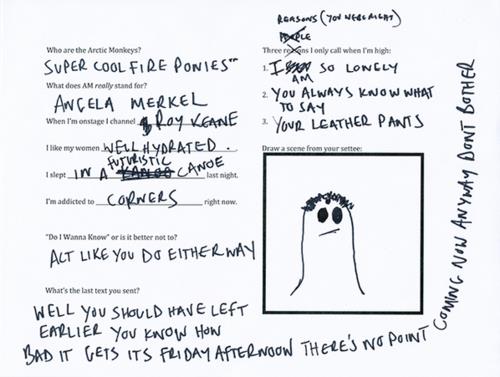 Who are the Arctic Monkeys?
SUPER COOL FIRE PONIES"
What does AM really stand for?
ANGELA MERKEL
When I'm onstage I channel ROY KEANE
I like my women WELL HYDRATED.
FUTURISTIC
I slept IN A CANOE last night.
I'm addicted to CORNERS right now.
"Do I Wanna Know" or is it better not to?
ACT LIKE YOU DO EITHER WAY
What's the last text you sent?
WELL YOU SHOULD HAVE LEFT
EARLIER YOU KNOW HOW
BAD IT GETS ITS FRIDAY AFTERNOON THERE'S NO POINT
COMING NOW ANYWAY DONT BOTHER
REASONS (YOU WERE RIGHT)
PEOPLE
Three reasons I only call when I'm high:
1. I SO LONELY
AM
2. YOU ALWAYS KNOW WHAT
TO SAY
3. YOUR LEATHER PANTS
Draw a scene from your settee: